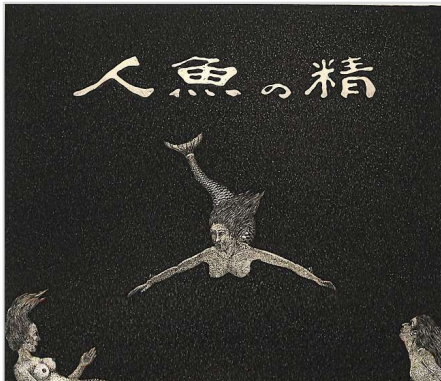 人魚の精